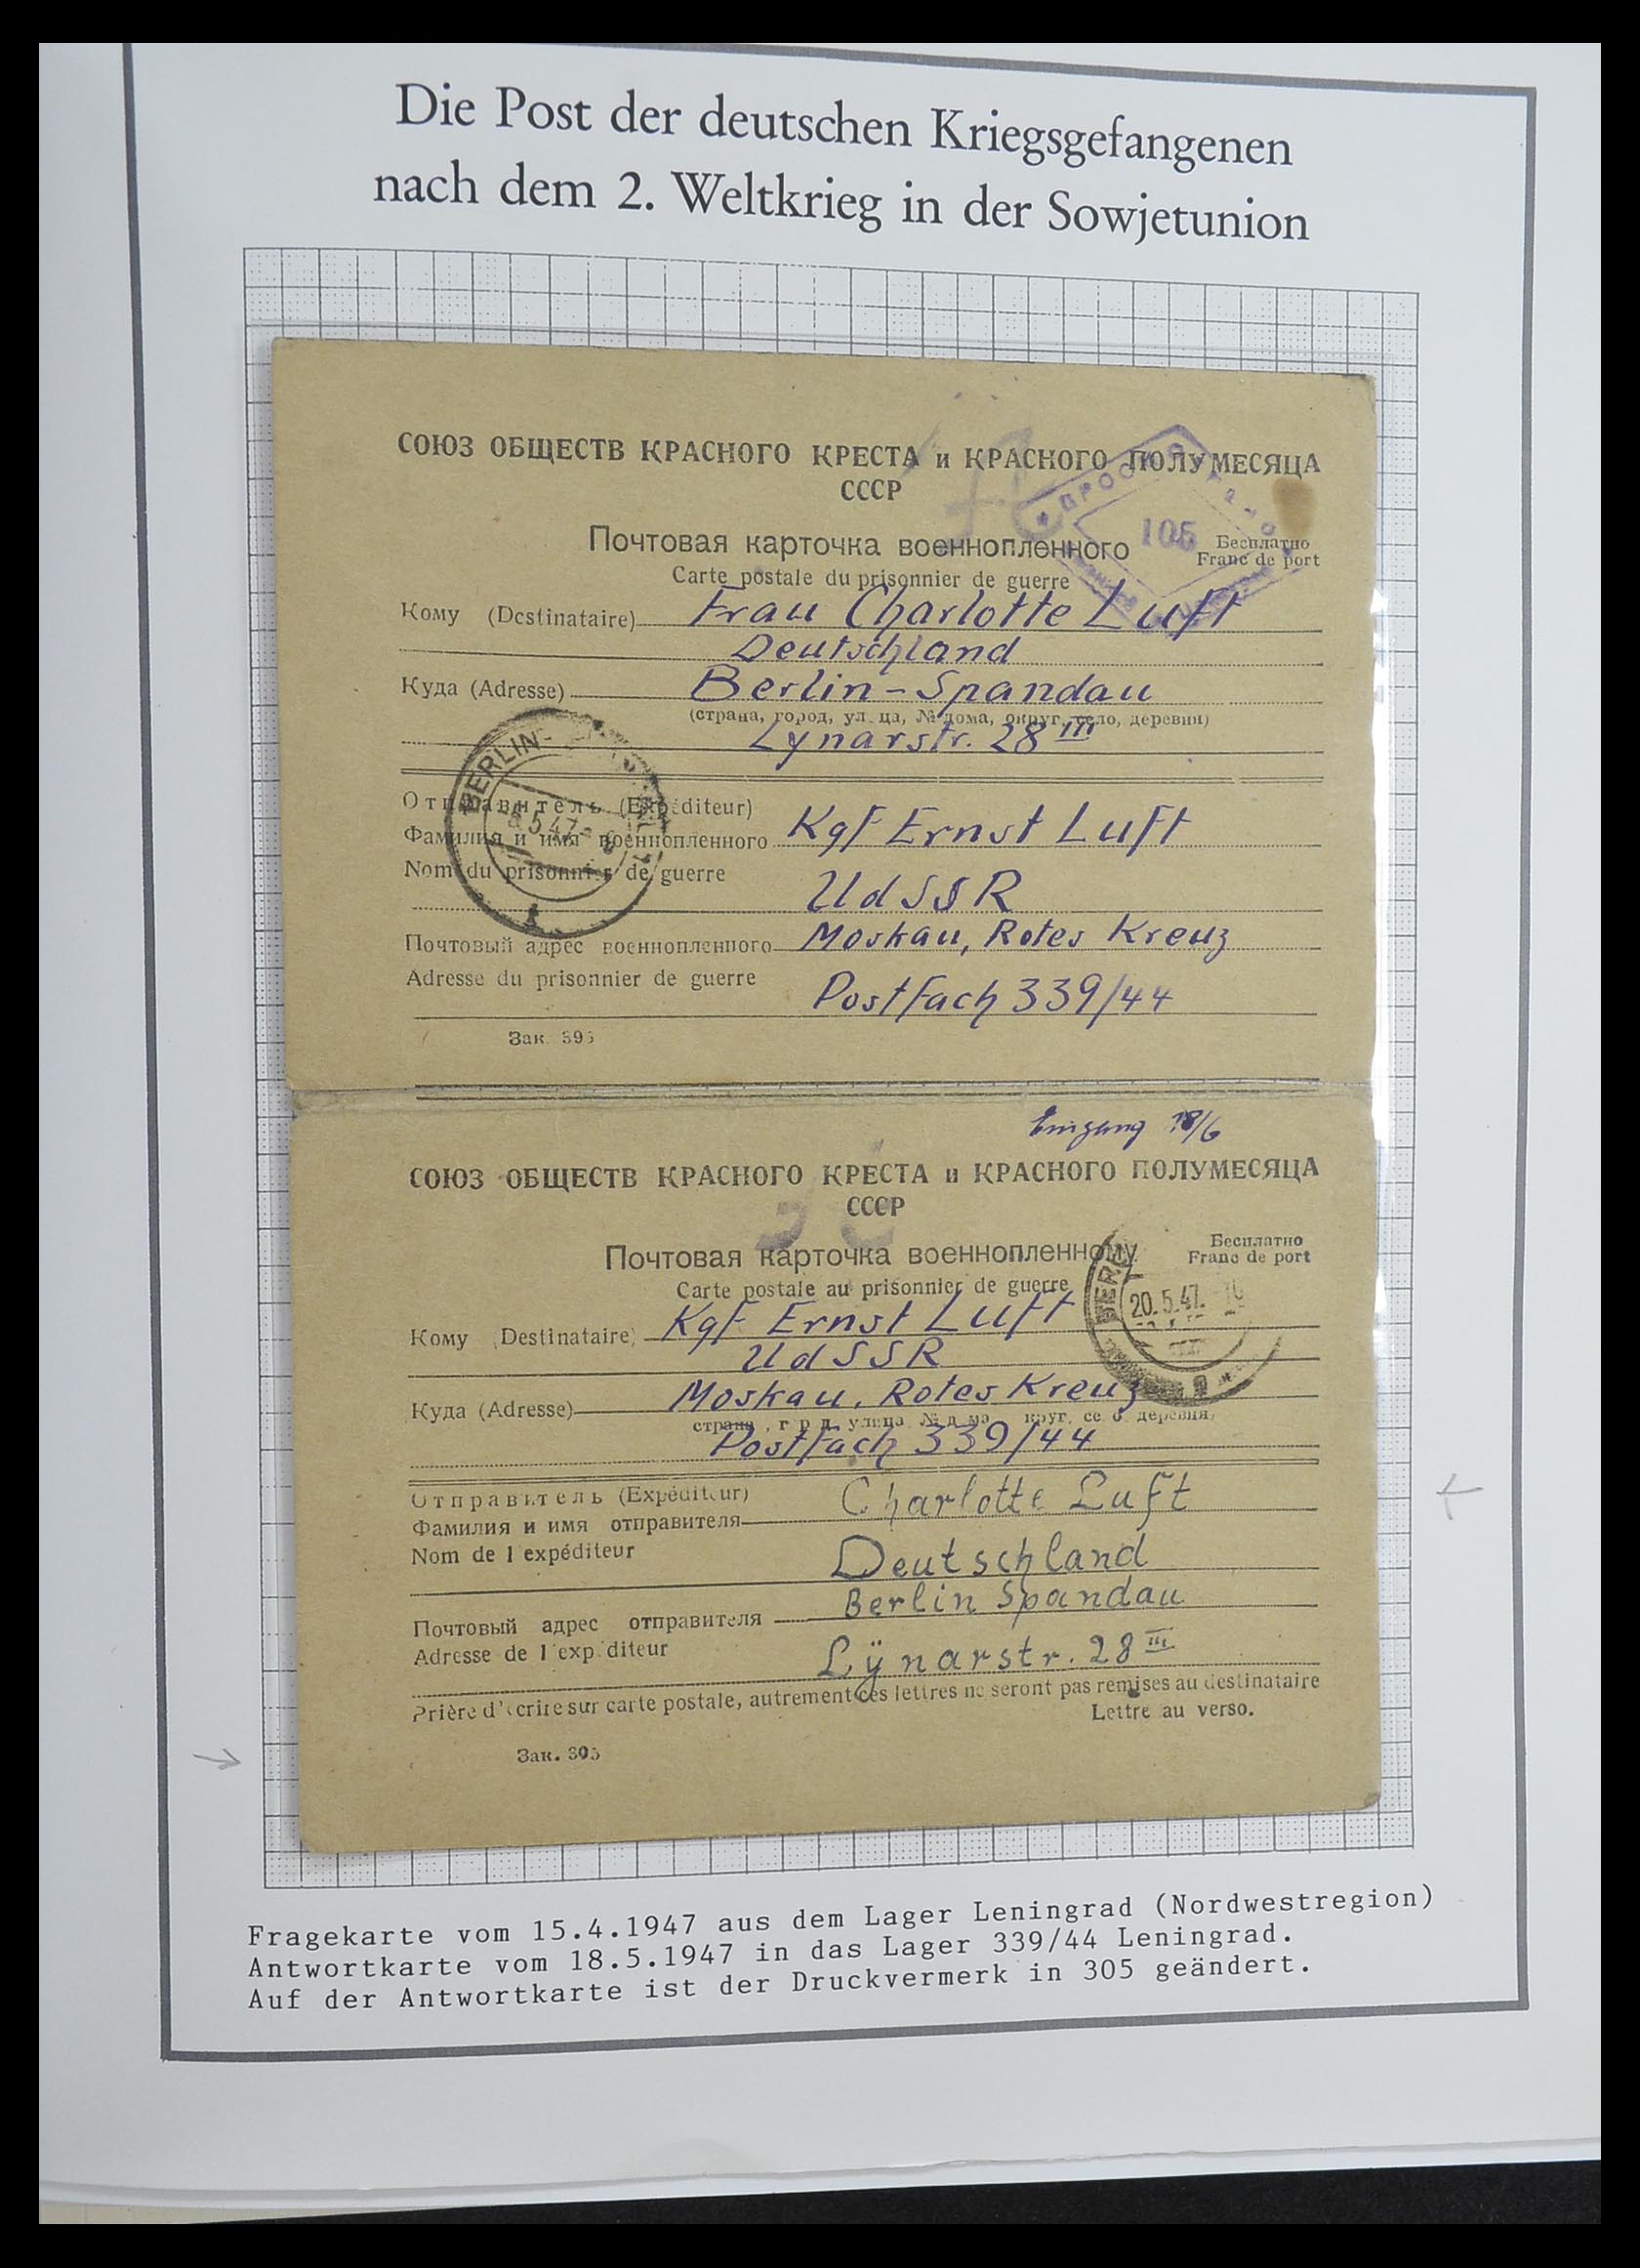 Die Post der deutschen Kriegsgefangenen
nach dem 2. Weltkrieg in der Sowjetunion
СОЮЗ ОБЩЕСТВ КРАСНОГО КРЕСТА и КРАСНОГО ПОЛУМЕСЯЦА
СССР
105
Почтовая карточка военнопленного
Бесплатно
Franc de port
Carte postale du prisonnier de guerre
Кому (Destinataire) Frau Charlotte Luft
Deutschland
Куда (Adresse) Berlin-Spandau
(страна, город, ул ца, № дома, округ, село, деревни)
Lynarstr. 28 III
BERLIN-
5.47
Отправитель (Expéditeur)
Фамилия и имя военнопленного Kgf Ernst Luft
Nom du prisonnier de guerre
UdSSR
Почтовый адрес военнопленного Moskau, Rotes Kreuz
Adresse du prisonnier de guerre
Postfach 339/44
Зак. 395
Eingang 18/6
СОЮЗ ОБЩЕСТВ КРАСНОГО КРЕСТА и КРАСНОГО ПОЛУМЕСЯЦА
СССР
Почтовая карточка военнопленному
Бесплатно
Franc de port
Carte postale au prisonnier de guerre
20.5.47
Кому (Destinataire) Kgf Ernst Luft
UdSSR
Куда (Adresse) Moskau, Rotes Kreuz
Postfach 339/44
Отправитель (Expéditeur) Charlotte Luft
Фамилия и имя отправителя
Nom de l expéditeur
Deutschland
Berlin Spandau
Почтовый адрес отправителя
Adresse de l'exp diteur
Lÿnarstr. 28 III
Prière d'écrire sur carte postale, autrement ces lettres ne seront pas remises au destinataire
Lettre au verso.
Зак. 305
Fragekarte vom 15.4.1947 aus dem Lager Leningrad (Nordwestregion)
Antwortkarte vom 18.5.1947 in das Lager 339/44 Leningrad.
Auf der Antwortkarte ist der Druckvermerk in 305 geändert.